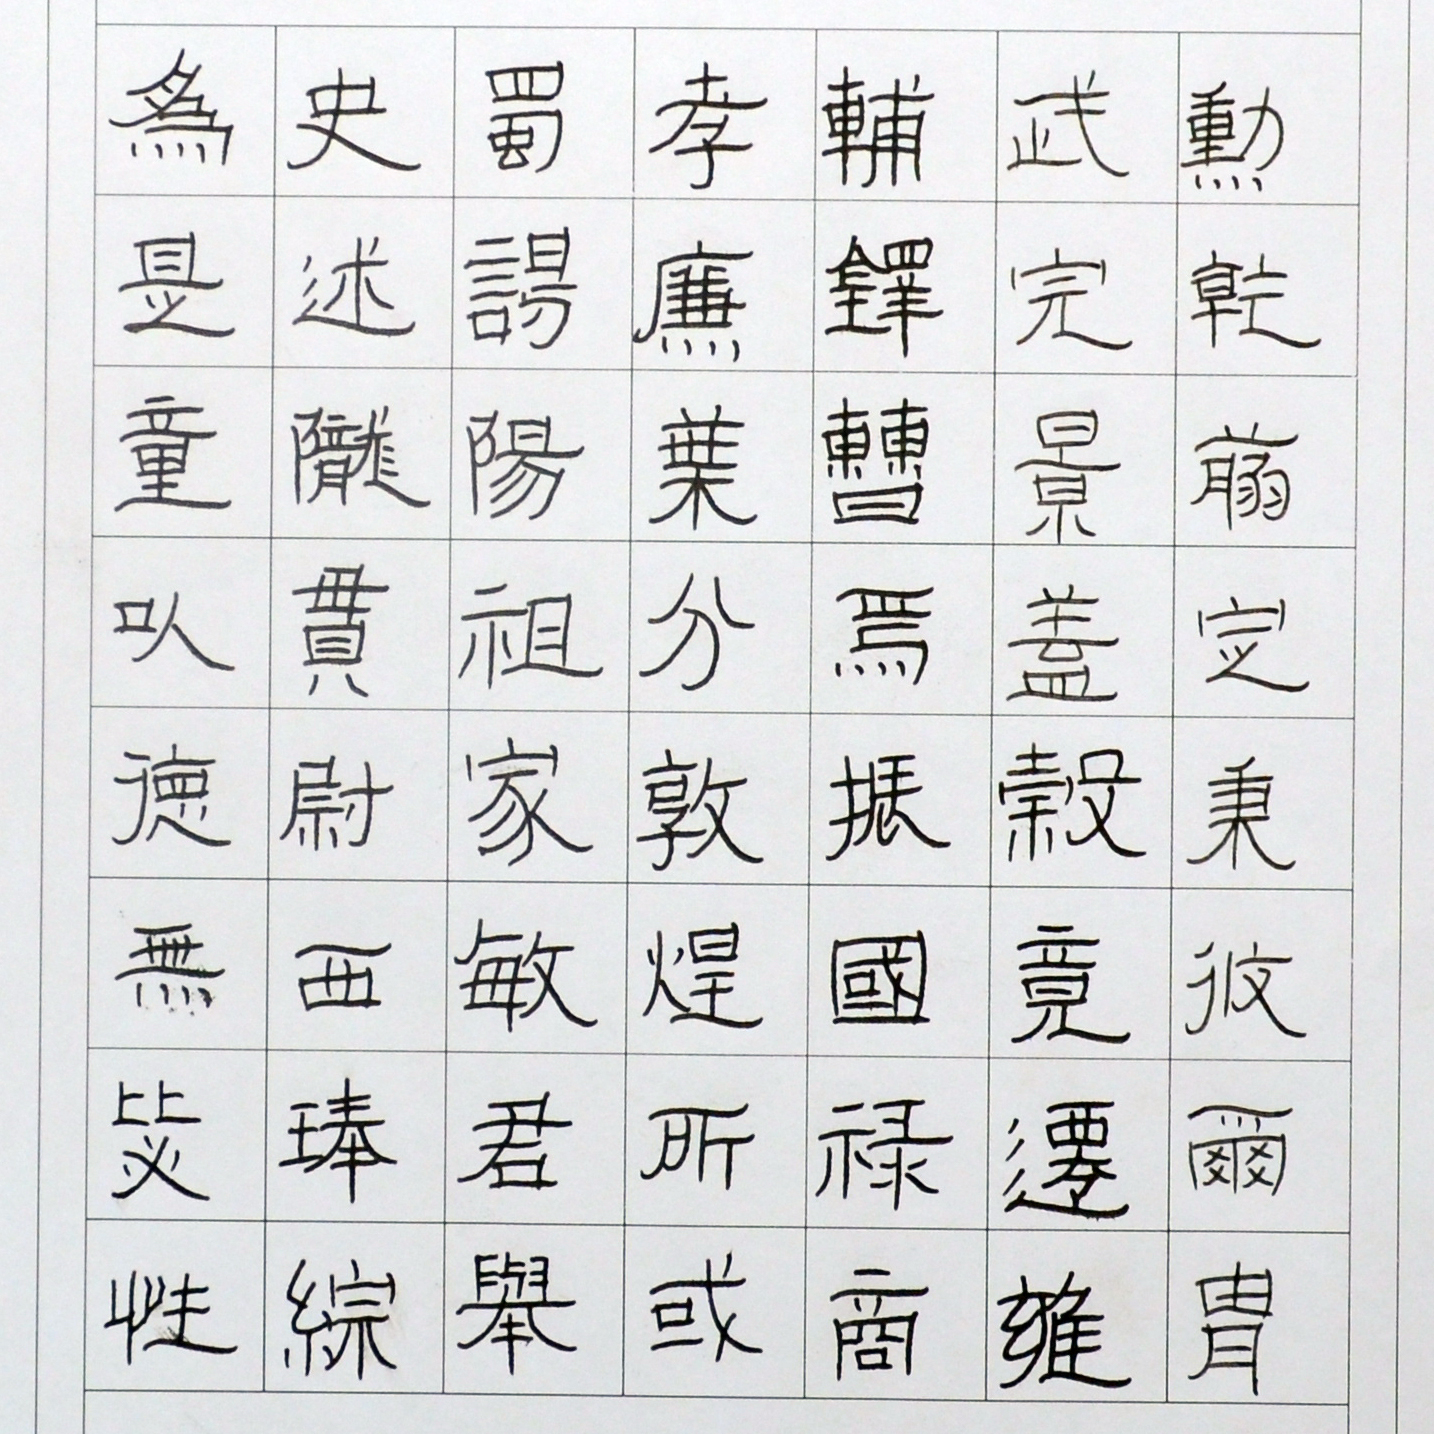 勳乾翦定秉攸爾胄
武完景蓋穀竟遷雍
輔鐸曹焉振國禄商
孝廉葉分敦煌所或
蜀謁陽祖家敏君舉
史述隴貫尉西琫綜
為是童以德無毖性